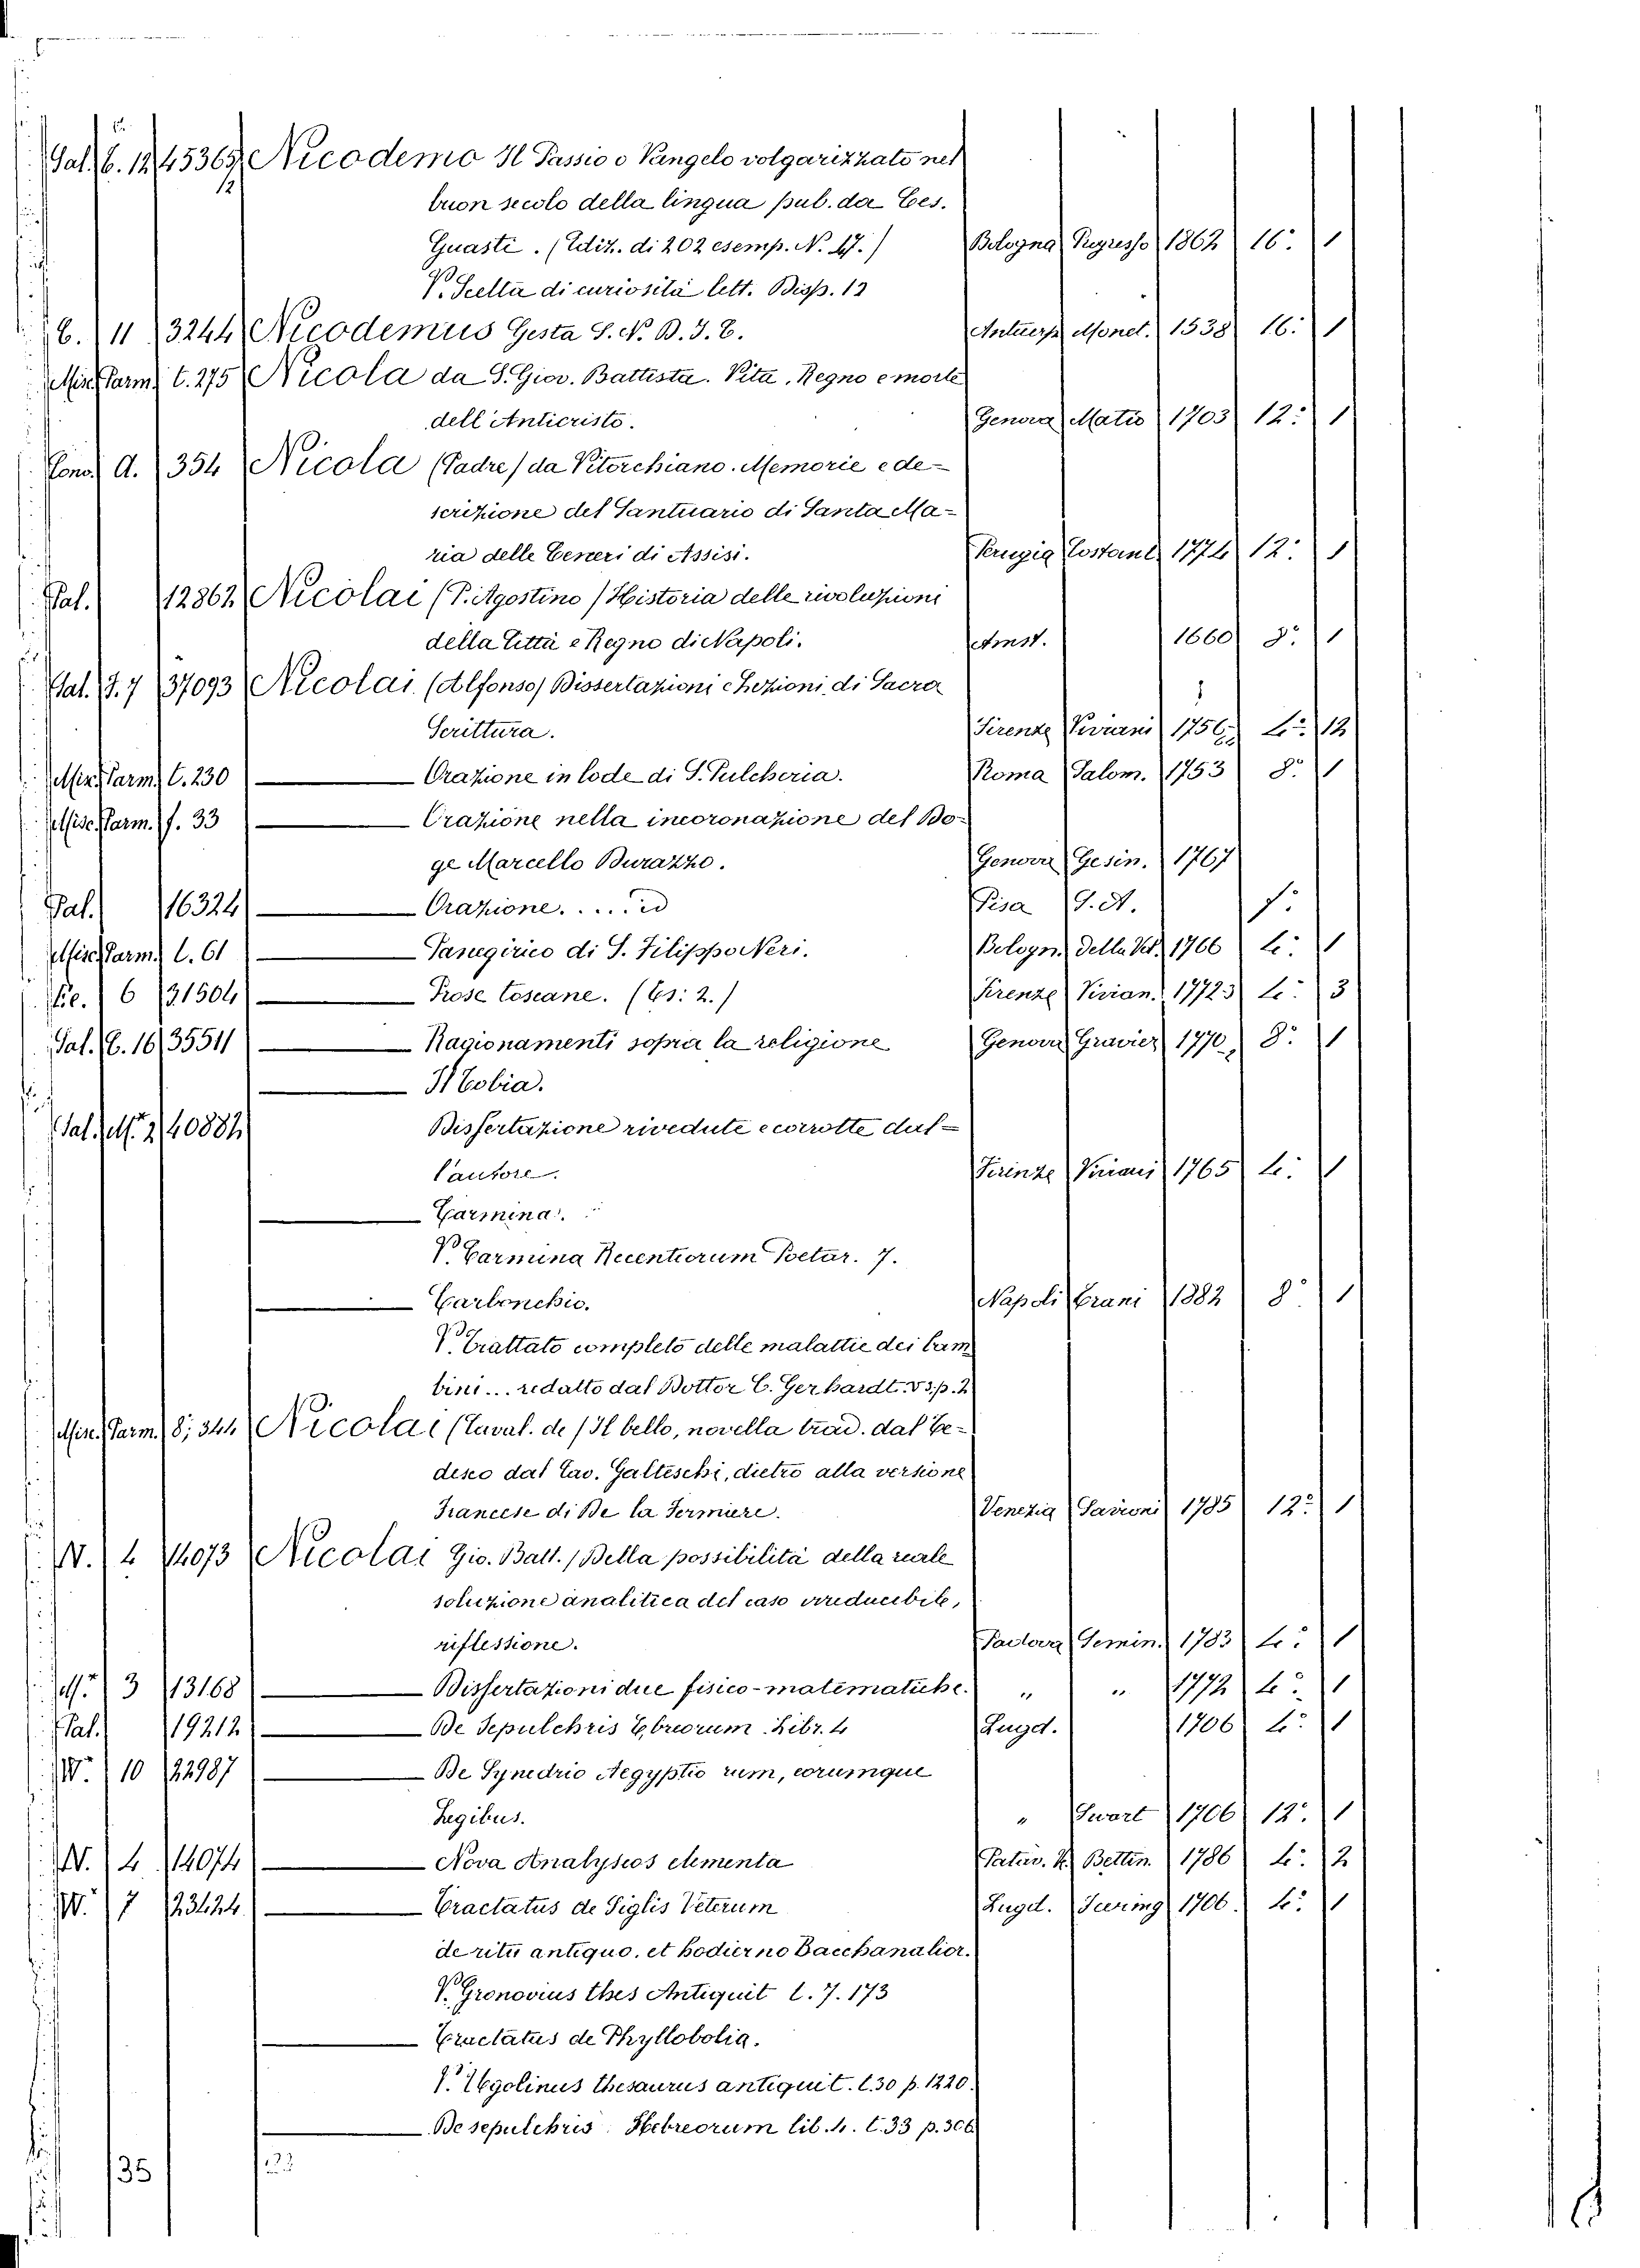 Sal. 6. 12 45365 Nicodemo Il Passio o Vangelo volgarizzato nel
12 buon secolo della lingua pub. da Ces.
Guasti. (Ediz. di 202 esemp. N. 47.) Bologna Regresso 1862 16° 1
V. Scelta di curiosità lett. Disp. 12
6. 11 3244 Nicodemus Gesta S. N. D. J. C. Antuerp. Monet. 1538 16: 1
Misc. Parm. t. 275 Nicola da S. Giov. Battista. Vita, Regno e morte
dell'Anticristo. Genova Matio 1703 12: 1
Cono. A. 354 Nicola (Padre) da Vitorchiano. Memorie e de-
scrizione del Santuario di Santa Ma-
ria delle Ceneri di Assisi. Perugia Costant. 1774 12: 1
Pal. 12862 Nicolai (P. Agostino) Historia delle rivoluzioni
della Città e Regno di Napoli. Amst. 1660 8° 1
Pal. J. 7 37093 Nicolai (Alfonso) Dissertazioni e Lezioni di Sacra
Scrittura. Firenze Viviani 1756 4° 12
Misc. Parm. t. 230 Orazione in lode di S. Pulcheria. Roma Salom. 1753 8° 1
Misc. Parm. f. 33 Orazione nella incoronazione del Do-
ge Marcello Durazzo. Genova Gesin. 1767
Pal. 16324 Orazione. Pisa S. A. f:
Misc. Parm. t. 61 Panegirico di S. Filippo Neri. Bologn. Della Vol. 1766 4: 1
6 31504 Prose toscane. (Es: 2.) Firenze Vivian. 1772.3 4: 3
Sal. C. 16 35511 Ragionamenti sopra la religione Genova Gravier 1770 8° 1
Il Tobia.
Sal. M. 2 40882 Dissertazione rivedute e corrette dal-
l'autore. Firenze Viviani 1765 4: 1
Carmina.
V. Carmina Recentiorum Poetar. 7.
Carbonchio. Napoli Trani 1882 8° 1
V. Trattato completo delle malattie dei bam
bini... redatto dal Dottor C. Gerhardt. v3. p. 2
Misc. Parm. 8; 344 Nicolai (Caval. de) Il bello, novella trad. dal te-
desco dal Cav. Galteschi, dietro alla versione
Francese di De la Fermiere. Venezia Savioni 1785 12: 1
N. 4 14073 Nicolai Gio. Batt. / Della possibilità della reale
soluzione analitica del caso irreducibile,
riflessione. Padova Semin. 1783 4: 1
M. 3 13168 Dissertazioni due fisico-matematiche. " " 1772 4° 1
Pal. 19212 De Sepulchris Ebreorum Libr. 4 Lugd. 1706 4: 1
W. 10 22987 De Synedrio Aegyptio rum, eorumque
Legibus. " Swart 1706 12° 1
N. 4 14074 Nova Analyseos elementa Patav. V. Bettin. 1786 4: 2
W. 7 23424 Tractatus de Siglis Veterum Lugd. Juring 1706 4° 1
de ritu antiquo, et hodierno Bacchanalior.
V. Gronovius thes Antiquit t. 7. 173
Tractatus de Phyllobolia.
V. Ugolinus thesaurus antiquit. t. 30 p. 1220.
De sepulchris Hebreorum lib. 4. t. 33 p. 306
35 23